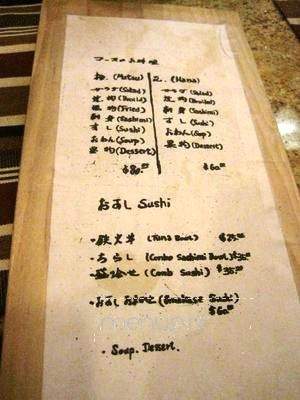 (Matsu) 2. (Hana)
サラダ (Salad) サラダ (Salad)
焼 (Broiled) 焼 (Broiled)
(Fried) 刺身 (Sashimi)
刺身 (Sashimi) すし (Sushi)
すし (Sushi) おわん (Soup)
おわん (Soup) (Dessert)
(Dessert)
$80.00 $60.00
おすし Sushi
・鉄火丼 (Tuna Bowl) $25.00
・ちらし (Combo Sashimi Bowl) $35.00
(Combo Sushi) $35.00
・おすし (Omakase Sushi)
$60.00
・Soup. Dessert.